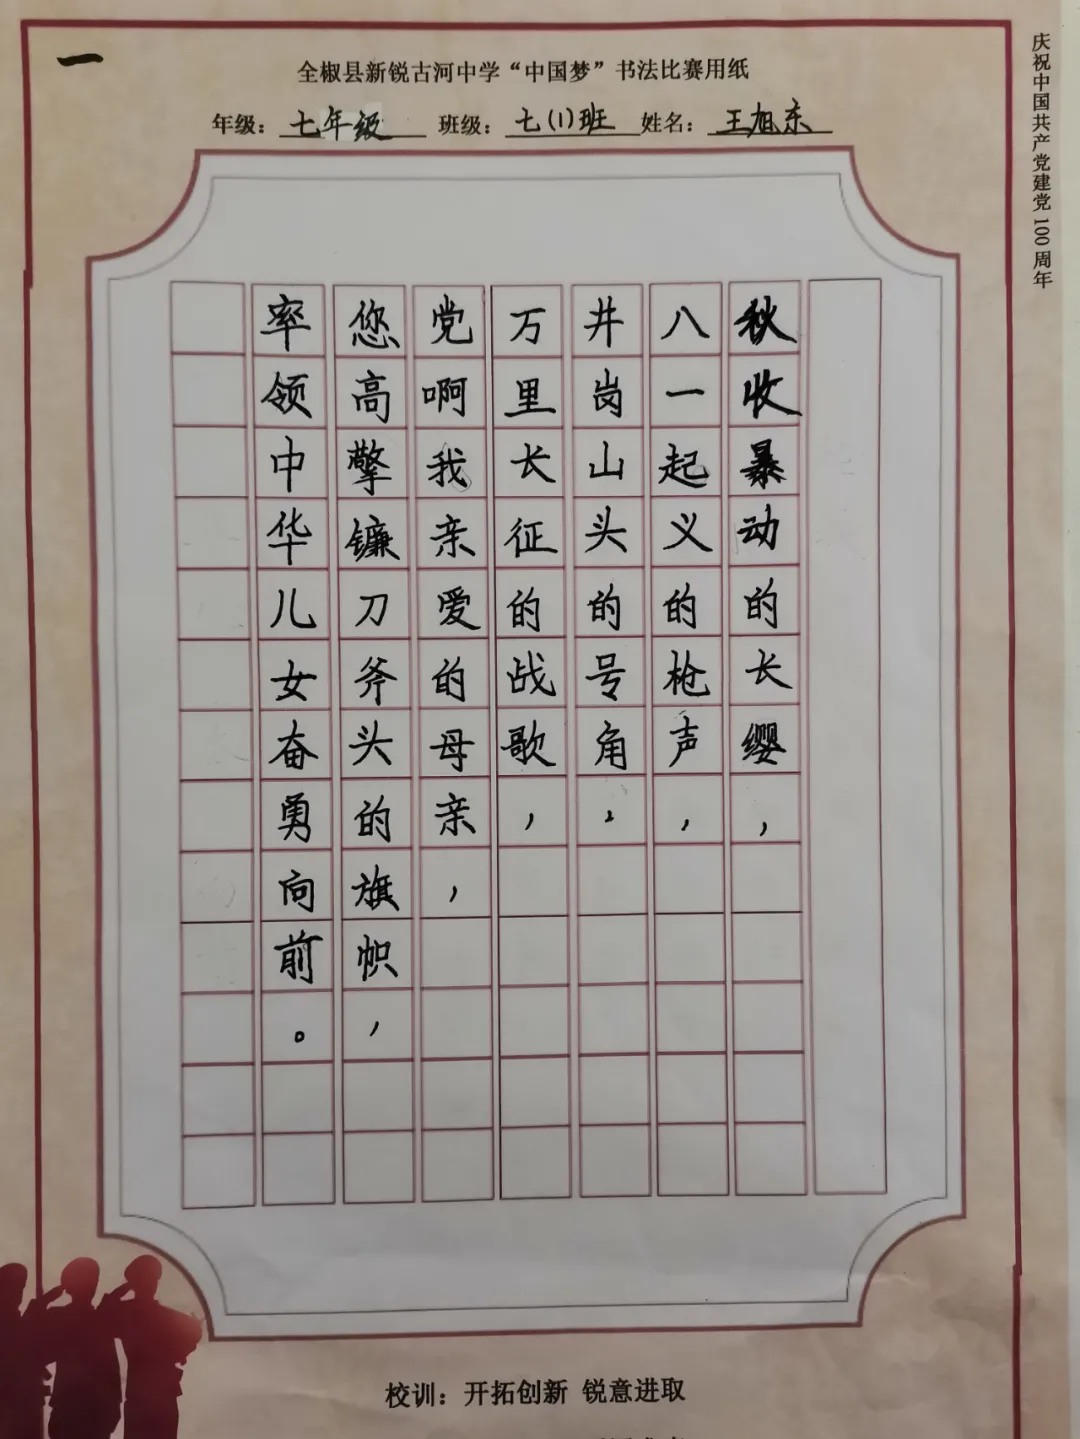 一
全椒县新锐古河中学“中国梦”书法比赛用纸
年级：七年级 班级：七(1)班 姓名：王旭东
庆祝中国共产党建党100周年
秋收暴动的长缨，
八一起义的枪声，
井岗山头的号角，
万里长征的战歌，
党啊我亲爱的母亲，
您高擎镰刀斧头的旗帜，
率领中华儿女奋勇向前。
校训：开拓创新 锐意进取